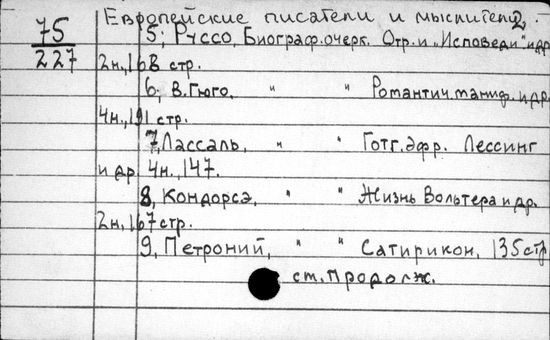 75
227
Европейские писатели и мыслители. 2.
5; Руссо, Биограф.очерк. Отр.и „Исповеди" и др
2н.,168 стр.
6, В.Гюго, " " Романтич.маниф. и др.
4н.,191 стр.
7,Лассаль, " " Готг.Эфр. Лессинг
и др 4н.,147.
8, Кондорсэ, " " Жизнь Вольтера и др.
2н,167стр.
9, Петроний, " " Сатирикон, 135стр
см.Продолж.